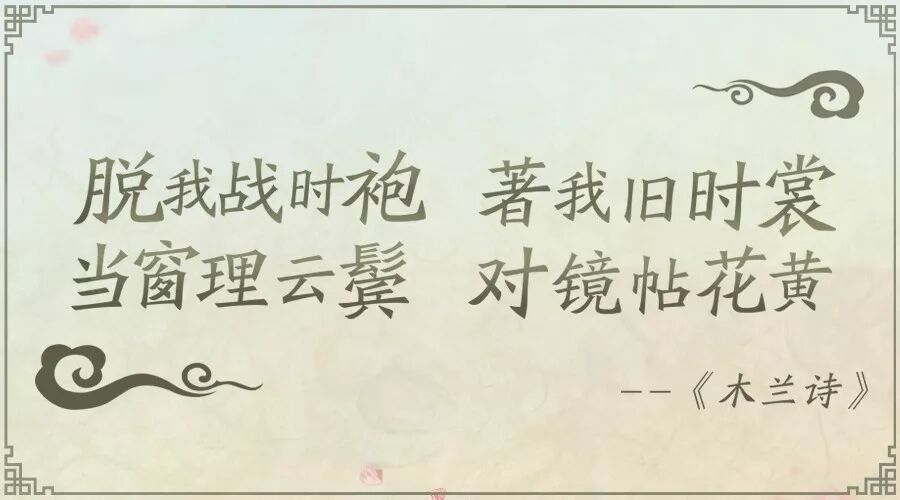 脱我战时袍 著我旧时裳
当窗理云鬓 对镜帖花黄
--《木兰诗》